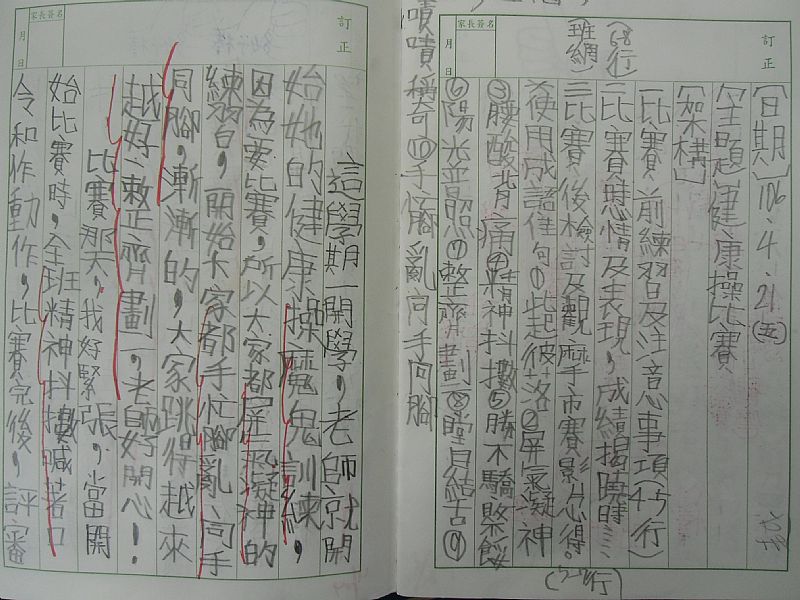 訂正
家長簽名
月 日
[日期]106.4.21(五)
[主題]健康操比賽
[架構]
一比賽前練習及注意事項(4-5行)
二比賽時心情及表現,成績揭曉時……
(6-8行)
(班網)
三比賽後檢討及觀摩市賽影片心得。
(7-8行)
使用成語佳句①此起彼落②屏氣凝神
③腰酸背痛④精神抖擻⑤勝不驕敗不餒
⑥陽光普照⑦整齊劃一⑧瞠目結舌⑨
嘖嘖稱奇⑩手忙腳亂同手同腳
訂正
家長簽名
月 日
這學期一開學,老師就開
始她的健康操魔鬼訓練,
因為要比賽,所以大家都屏氣凝神的
練習,開始大家都手忙腳亂、同手
同腳,漸漸的,大家跳得越來
越好、整齊劃一,老師好開心!
比賽那天,我好緊張,當開
始比賽時,全班精神抖擻喊著口
令和作動作,比賽完後,評審